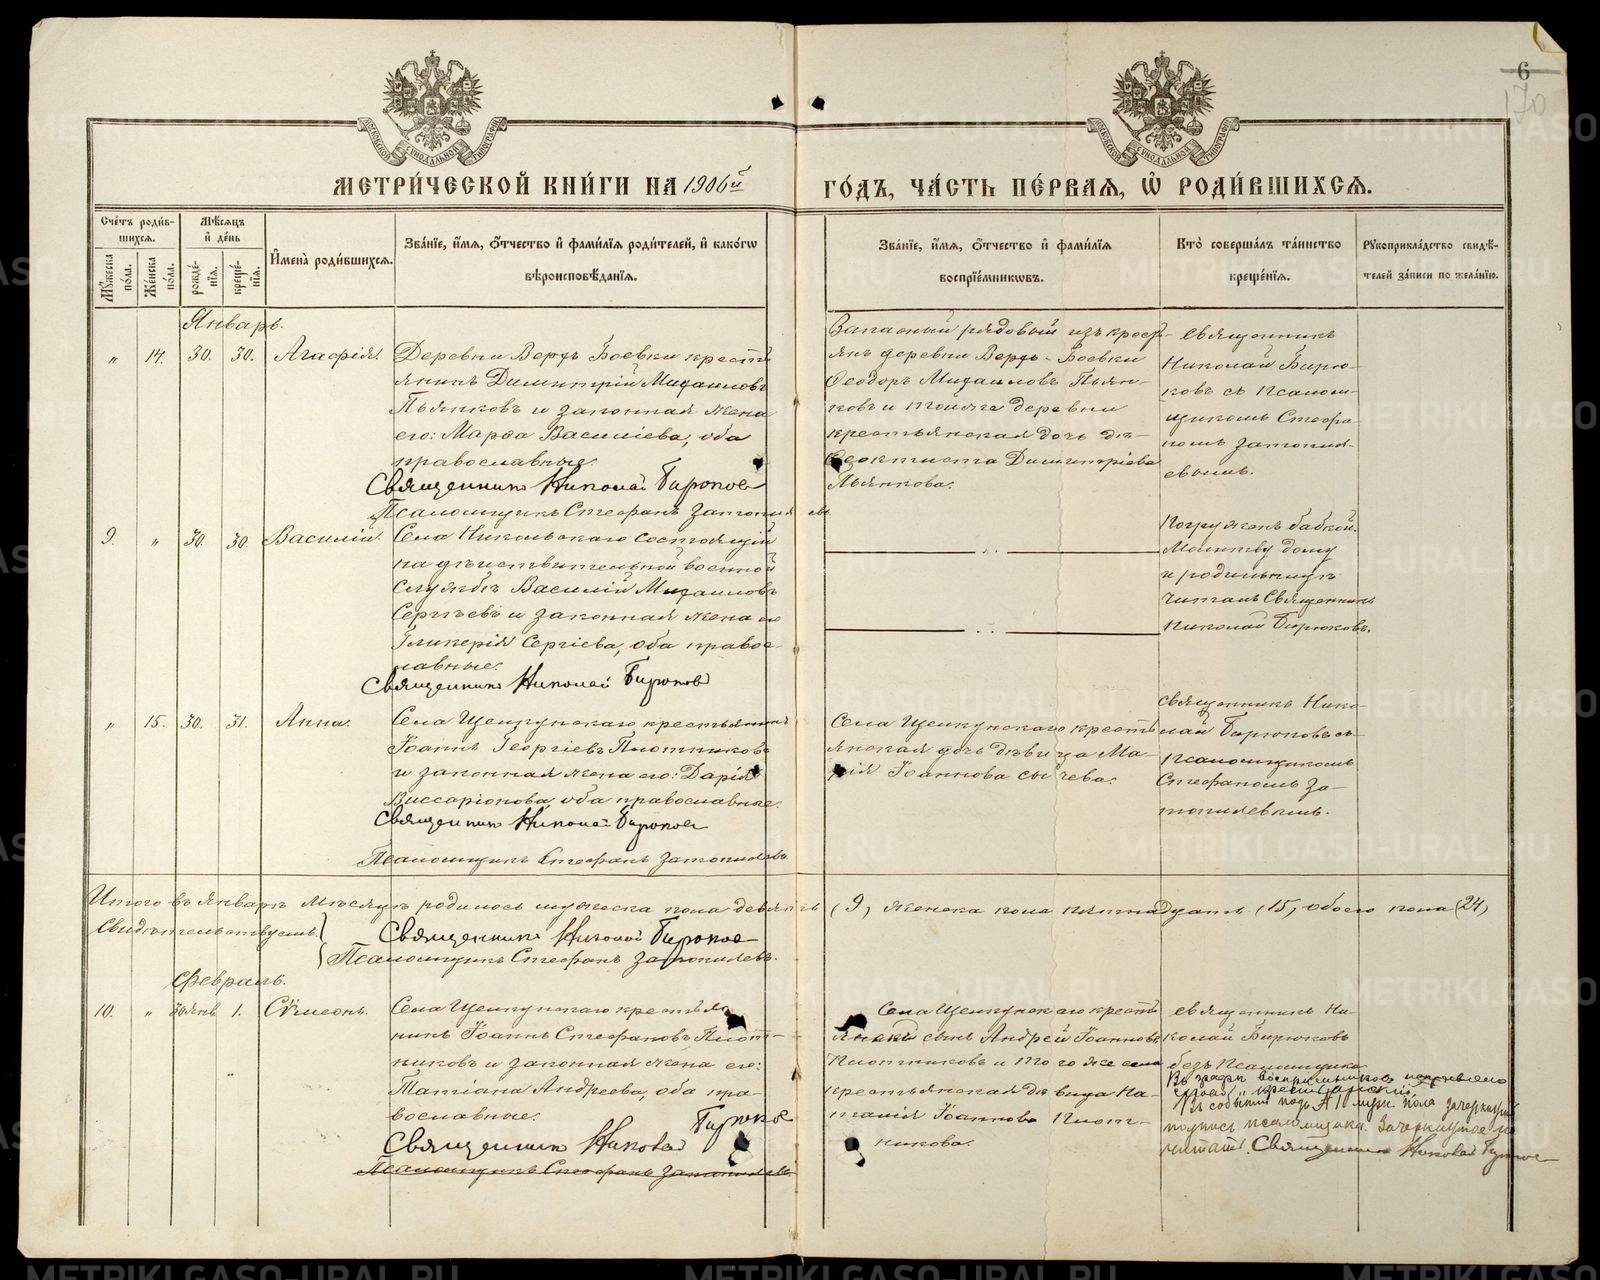 6
170
МОСКОВСКОЙ СѴНОДАЛЬНОЙ ТИПОГРАФІИ
МОСКОВСКОЙ СѴНОДАЛЬНОЙ ТИПОГРАФІИ
МЕТРИ́ЧЕСКОЙ КНИ́ГИ НА 1906й ГО́ДЪ, ЧА́СТЬ ПЕ́РВАЯ, Ѡ҆ РОДИ́ВШИХСЯ.
Сче́тъ роди́в-
шихся.
Мꙋ́жеска по́ла.
Же́нска по́ла.
Мѣ́сяцъ и҆ де́нь
рожде́-
нїя.
креще́-
нїя.
И҆мена̀ роди́вшихся.
Зва́нїе, и҆́мя, ѻ҆́тчество и҆ фами́лїя роди́телей, и҆ како́гѡ
вѣроисповѣ́данїя.
Зва́нїе, и҆́мя, ѻ҆́тчество и҆ фами́лїя
воспрїе́мникѡвъ.
Кто̀ соверша́лъ та́инство
креще́нїя.
Рꙋкоприкла́дство свидѣ́-
телей за́писи по жела́нїю.
Январь.
" 14. 30. 30. Агафія.
Деревни Вердъ Боевки кресть
янинъ Димитрій Михаиловъ
Пьянковъ и законная жена
его: Марѳа Василіева, оба
православные.
Священникъ Николай Бирюков
Псаломщикъ Стефанъ Затопляевъ
Запасный рядовый изъ крест-
янъ деревни Вердъ-Боевки
Ѳеодоръ Михаиловъ Пьян-
ковъ и тояже деревни
крестьянская дочь дѣ-
Ѳеоктиста Димитріева
Пьянкова.
Священникъ
Николай Бирю-
ковъ съ псалом-
щикомъ Стефа-
номъ Затопля-
евымъ.
9. " 30. 30. Василій.
Села Никольскаго состоящій
на дѣйствительной военной
службѣ Василій Михаиловъ
Сергѣевъ и законная жена его
Гликерія Сергіева, оба правос-
лавные.
Священникъ Николай Бирюков
Погруженъ бабкой.
Молитву дому
и родильницѣ
читалъ Священникъ
Николай Бирюковъ.
" 15. 30. 31. Анна.
Села Щелкунскаго крестьянинъ
Іоаннъ Георгіевъ Плотниковъ
и законная жена его: Дарія
Виссаріонова, оба православные.
Священникъ Николай Бирюков
Псаломщикъ Стефанъ Затопляевъ.
Села Щелкунскаго кресть
янская дочь дѣвица Ма-
рія Іоаннова Сычева.
Священникъ Нико-
лай Бирюковъ съ
псаломщикомъ
Стефаномъ За-
топляевымъ.
Итого въ Январѣ мѣсяцѣ родилось мужеска пола девять (9) женска пола пятнадцать (15), обоего пола (24)
Свидѣтельствуемъ:
Священникъ Николай Бирюков
Псаломщикъ Стефанъ Затопляевъ.
Февраль.
10. " 30 янв 1. Сѵмеонъ.
Села Щелкунскаго крестья
нинъ Іоаннъ Стефановъ Плот-
никовъ и законная жена его:
Татіана Андреева, оба пра-
вославные.
Священникъ Николай Бирюков
Псаломщикъ Стефанъ Затопляевъ
Села Щелкунскаго кресть
янскій сынъ Андрей Іоанновъ
Плотниковъ и того же села
крестьянская дѣвица На-
талія Іоаннова Плот-
никова.
Священникъ Ни-
колай Бирюковъ
безъ псаломщика
Въ графѣ воспріемниковъ исправлено
слово "крестьянскій".
Въ событіи подъ № 1 муж. пола зачеркнута
подпись псаломщика. Зачеркнутое не
читать. Священникъ Николай Бирюков
METRIKI.GASO-URAL.RU